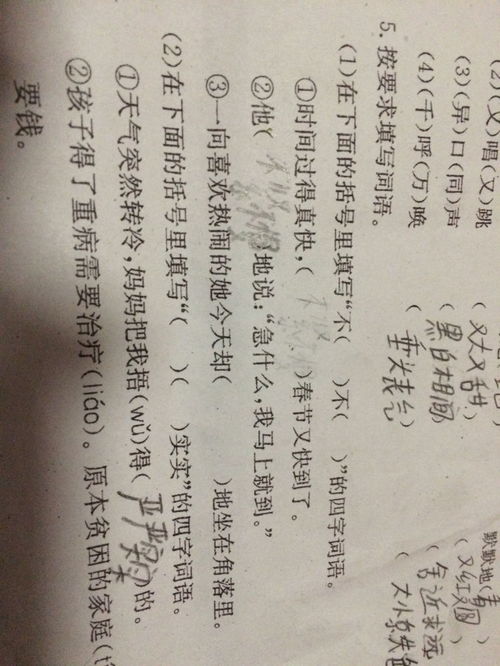 (2)(又)唱(又)跳
(3)(异)口(同)声 (又大又甜) (又红又圆)
黑白相间 舍近求远
(4)(千)呼(万)唤 (垂头丧气 (大惊失色
5. 按要求填写词语。
(1)在下面的括号里填写“不( )不( )”的四字词语。
①时间过得真快,( )春节又快到了。
②他( )地说:“急什么,我马上就到。”
③一向喜欢热闹的她今天却( )地坐在角落里。
(2)在下面的括号里填写“( )( )实实”的四字词语。
①天气突然转冷,妈妈把我捂(wǔ)得(严严实实)的。
②孩子得了重病需要治疗(liáo)。原本贫困的家庭(
要钱。